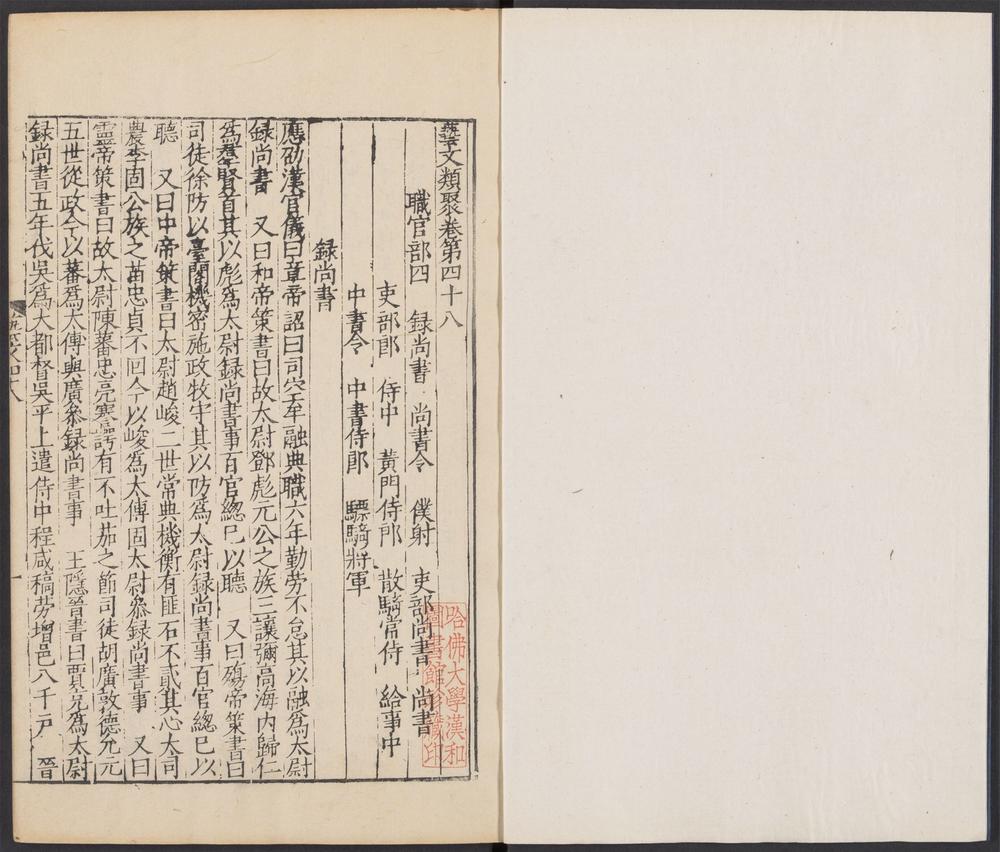 藝文類聚卷第四十八
職官部四 録尚書 尚書令 僕射 吏部尚書 尚書
吏部郎 侍中 黃門侍郎 散騎常侍 給事中
中書令 中書侍郎 驃騎將軍
録尚書
應劭漢官儀曰章帝詔曰司空牟融典職六年勤勞不怠其以融爲太尉
録尚書 又曰和帝策書曰故太尉鄧彪元公之族三讓彌高海内歸仁
爲羣賢首其以彪爲太尉録尚書事百官緫巳以聽 又曰殤帝策書曰
司徒徐防以臺閣機密施政牧守其以防爲太尉録尚書事百官緫巳以
聽 又曰中帝策書曰太尉趙峻二世常典機衡有匪石不貳其心大司
農李固公族之苗忠貞不回今以峻爲太傅固太尉叅録尚書事 又曰
靈帝策書曰故太尉陳蕃忠亮謇諤有不吐茄之節司徒胡廣敦德允元
五世從政今以蕃爲太傅與廣叅録尚書事 王隱晉書曰賈充爲太尉
録尚書五年伐吳爲大都督吳平上遣侍中程咸犒勞增邑八千戸 晉
一
哈佛大學漢和
圖書館珍藏印